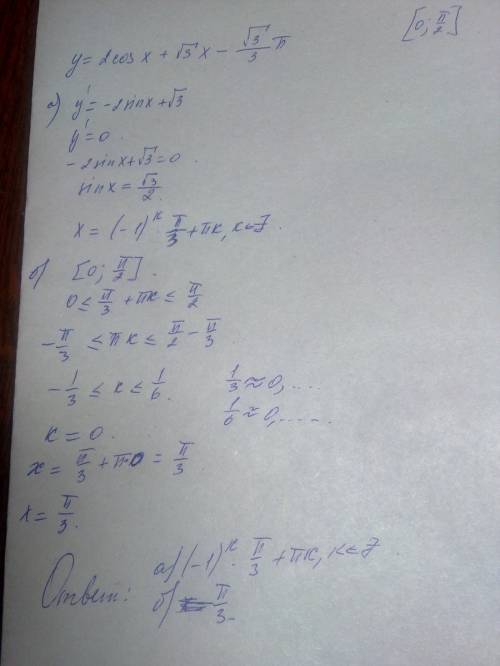 y = 2cos x + √3 x − √3/3 π [0; π/2]
а) y' = −2sinx + √3
y' = 0.
−2sinx + √3 = 0.
sinx = √3/2.
x = (−1)^k · π/3 + πk, k ∈ Z.
б) [0; π/2].
0 ≤ π/3 + πk ≤ π/2
−π/3 ≤ πk ≤ π/2 − π/3
−1/3 ≤ k ≤ 1/6. 1/3 ≈ 0,....
1/6 ≈ 0,.....
k = 0.
x = π/3 + π·0 = π/3
x = π/3.
Ответ: а) (−1)^k · π/3 + πk, k ∈ Z.
б) π/3.